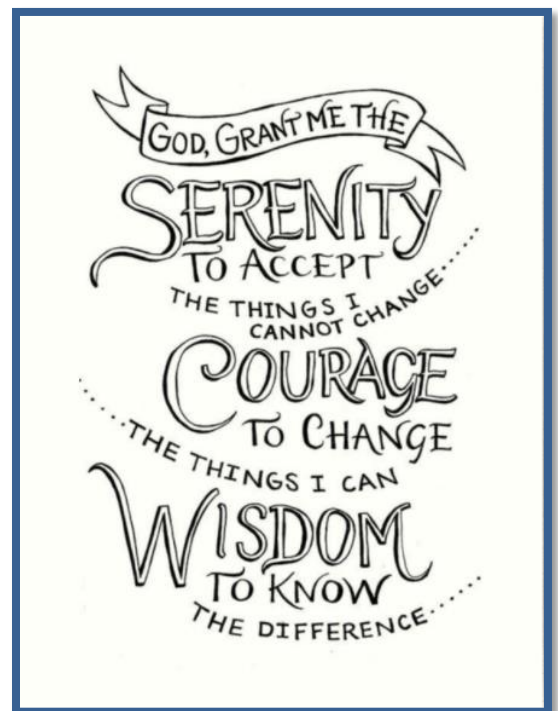 GOD, GRANT ME THE
SERENITY
TO ACCEPT
THE THINGS I
CANNOT CHANGE......
COURAGE
TO CHANGE
.....THE THINGS I CAN
WISDOM
TO KNOW
THE DIFFERENCE......